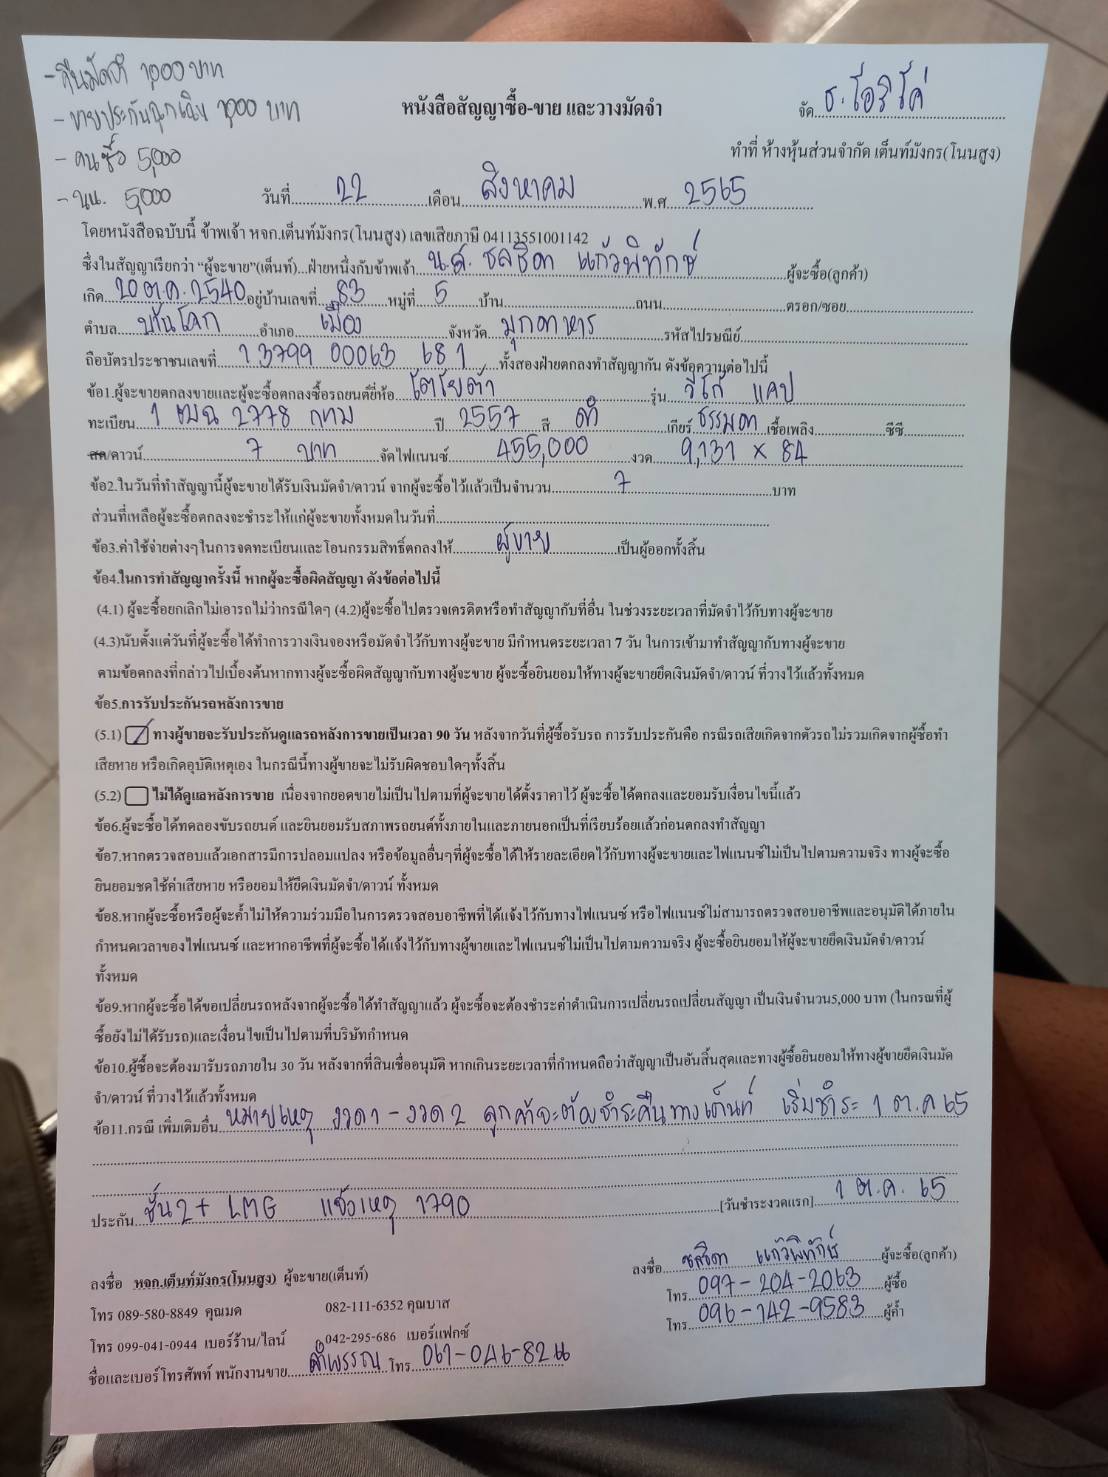 - คืนมัดจำ 1,000 บาท
- ขายประกันฉุกเฉิน 1,000 บาท
- คนซื้อ 5,000
- นน. 5,000
หนังสือสัญญาซื้อ-ขาย และวางมัดจำ
จัด ธ.โอริโค่
ทำที่ ห้างหุ้นส่วนจำกัด เต็นท์มังกร(โนนสูง)
วันที่ 22 เดือน สิงหาคม พ.ศ 2565
โดยหนังสือฉบับนี้ ข้าพเจ้า หจก.เต็นท์มังกร(โนนสูง) เลขเสียภาษี 04113551001142
ซึ่งในสัญญาเรียกว่า "ผู้จะขาย"(เต็นท์)...ฝ่ายหนึ่งกับข้าพเจ้า น.ส. ชลธิดา แก้วพิทักษ์ ผู้จะซื้อ(ลูกค้า)
เกิด 20 ต.ค. 2540 อยู่บ้านเลขที่ 83 หมู่ที่ 5 บ้าน ถนน ตรอก/ซอย
ตำบล บ้านโคก อำเภอ เมือง จังหวัด มุกดาหาร รหัสไปรษณีย์
ถือบัตรประชาชนเลขที่ 1 3799 00063 68 1 ทั้งสองฝ่ายตกลงทำสัญญากัน ดังข้อความต่อไปนี้
ข้อ1.ผู้จะขายตกลงขายและผู้จะซื้อตกลงซื้อรถยนต์ยี่ห้อ โตโยต้า รุ่น วีโก้ แคป
ทะเบียน 1 ฒฉ 2778 กทม ปี 2557 สี ดำ เกียร์ ธรรมดา เชื้อเพลิง ซีซี
สด/ดาวน์ 7 บาท จัดไฟแนนซ์ 455,000 งวด 9,131 x 84
ข้อ2.ในวันที่ทำสัญญานี้ผู้จะขายได้รับเงินมัดจำ/ดาวน์ จากผู้จะซื้อไว้แล้วเป็นจำนวน 7 บาท
ส่วนที่เหลือผู้จะซื้อตกลงจะชำระให้แก่ผู้จะขายทั้งหมดในวันที่
ข้อ3.ค่าใช้จ่ายต่างๆในการจดทะเบียนและโอนกรรมสิทธิ์ตกลงให้ ผู้ขาย เป็นผู้ออกทั้งสิ้น
ข้อ4.ในการทำสัญญาครั้งนี้ หากผู้จะซื้อผิดสัญญา ดังข้อต่อไปนี้
(4.1) ผู้จะซื้อยกเลิกไม่เอารถไม่ว่ากรณีใดๆ (4.2)ผู้จะซื้อไปตรวจเครดิตหรือทำสัญญากับที่อื่น ในช่วงระยะเวลาที่มัดจำไว้กับทางผู้จะขาย
(4.3)นับตั้งแต่วันที่ผู้จะซื้อได้ทำการวางเงินจองหรือมัดจำไว้กับทางผู้จะขาย มีกำหนดระยะเวลา 7 วัน ในการเข้ามาทำสัญญากับทางผู้จะขาย
ตามข้อตกลงที่กล่าวไปเบื้องต้นหากทางผู้จะซื้อผิดสัญญากับทางผู้จะขาย ผู้จะซื้อยินยอมให้ทางผู้จะขายยึดเงินมัดจำ/ดาวน์ ที่วางไว้แล้วทั้งหมด
ข้อ5.การรับประกันรถหลังการขาย
(5.1) ทางผู้ขายจะรับประกันดูแลรถหลังการขายเป็นเวลา 90 วัน หลังจากวันที่ผู้ซื้อรับรถ การรับประกันคือ กรณีรถเสียเกิดจากตัวรถไม่รวมเกิดจากผู้ซื้อทำ
เสียหาย หรือเกิดอุบัติเหตุเอง ในกรณีนี้ทางผู้ขายจะไม่รับผิดชอบใดๆทั้งสิ้น
(5.2) ไม่ได้ดูแลหลังการขาย เนื่องจากยอดขายไม่เป็นไปตามที่ผู้จะขายได้ตั้งราคาไว้ ผู้จะซื้อได้ตกลงและยอมรับเงื่อนไขนี้แล้ว
ข้อ6.ผู้จะซื้อได้ทดลองขับรถยนต์ และยินยอมรับสภาพรถยนต์ทั้งภายในและภายนอกเป็นที่เรียบร้อยแล้วก่อนตกลงทำสัญญา
ข้อ7.หากตรวจสอบแล้วเอกสารมีการปลอมแปลง หรือข้อมูลอื่นๆที่ผู้จะซื้อได้ให้รายละเอียดไว้กับทางผู้จะขายและไฟแนนซ์ไม่เป็นไปตามความจริง ทางผู้จะซื้อ
ยินยอมชดใช้ค่าเสียหาย หรือยอมให้ยึดเงินมัดจำ/ดาวน์ ทั้งหมด
ข้อ8.หากผู้จะซื้อหรือผู้จะค้ำไม่ให้ความร่วมมือในการตรวจสอบอาชีพที่ได้แจ้งไว้กับทางไฟแนนซ์ หรือไฟแนนซ์ไม่สามารถตรวจสอบอาชีพและอนุมัติได้ภายใน
กำหนดเวลาของไฟแนนซ์ และหากอาชีพที่ผู้จะซื้อได้แจ้งไว้กับทางผู้ขายและไฟแนนซ์ไม่เป็นไปตามความจริง ผู้จะซื้อยินยอมให้ผู้จะขายยึดเงินมัดจำ/ดาวน์
ทั้งหมด
ข้อ9.หากผู้จะซื้อได้ขอเปลี่ยนรถหลังจากผู้จะซื้อได้ทำสัญญาแล้ว ผู้จะซื้อจะต้องชำระค่าดำเนินการเปลี่ยนรถเปลี่ยนสัญญา เป็นเงินจำนวน5,000 บาท (ในกรณที่ผู้
ซื้อยังไม่ได้รับรถ)และเงื่อนไขเป็นไปตามที่บริษัทกำหนด
ข้อ10.ผู้ซื้อจะต้องมารับรถภายใน 30 วัน หลังจากที่สินเชื่ออนุมัติ หากเกินระยะเวลาที่กำหนดถือว่าสัญญาเป็นอันสิ้นสุดและทางผู้ซื้อยินยอมให้ทางผู้ขายยึดเงินมัด
จำ/ดาวน์ ที่วางไว้แล้วทั้งหมด
ข้อ11.กรณี เพิ่มเติมอื่น หมายเหตุ งวด 1 - งวด 2 ลูกค้าจะต้องชำระคืนทางเต็นท์ เริ่มชำระ 1 ต.ค 65
ประกัน ชั้น 2+ LMG แจ้งเหตุ 1790 [วันชำระงวดแรก] 1 ต.ค. 65
ลงชื่อ ชลธิดา แก้วพิทักษ์ ผู้จะซื้อ(ลูกค้า)
ลงชื่อ หจก.เต็นท์มังกร(โนนสูง) ผู้จะขาย(เต็นท์)
โทร 097-204-2063 ผู้ซื้อ
โทร 089-580-8849 คุณมด 082-111-6352 คุณบาส
โทร 096-142-9583 ผู้ค้ำ
โทร 099-041-0944 เบอร์ร้าน/ไลน์ 042-295-686 เบอร์แฟกซ์
ชื่อและเบอร์โทรศัพท์ พนักงานขาย ลำพรรณ โทร 061-046-82